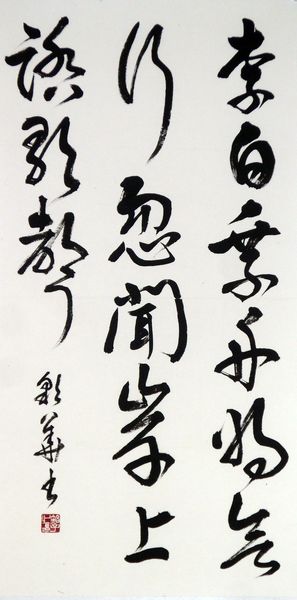 李白乘舟將欲
行忽聞岸上
踏歌聲
華书